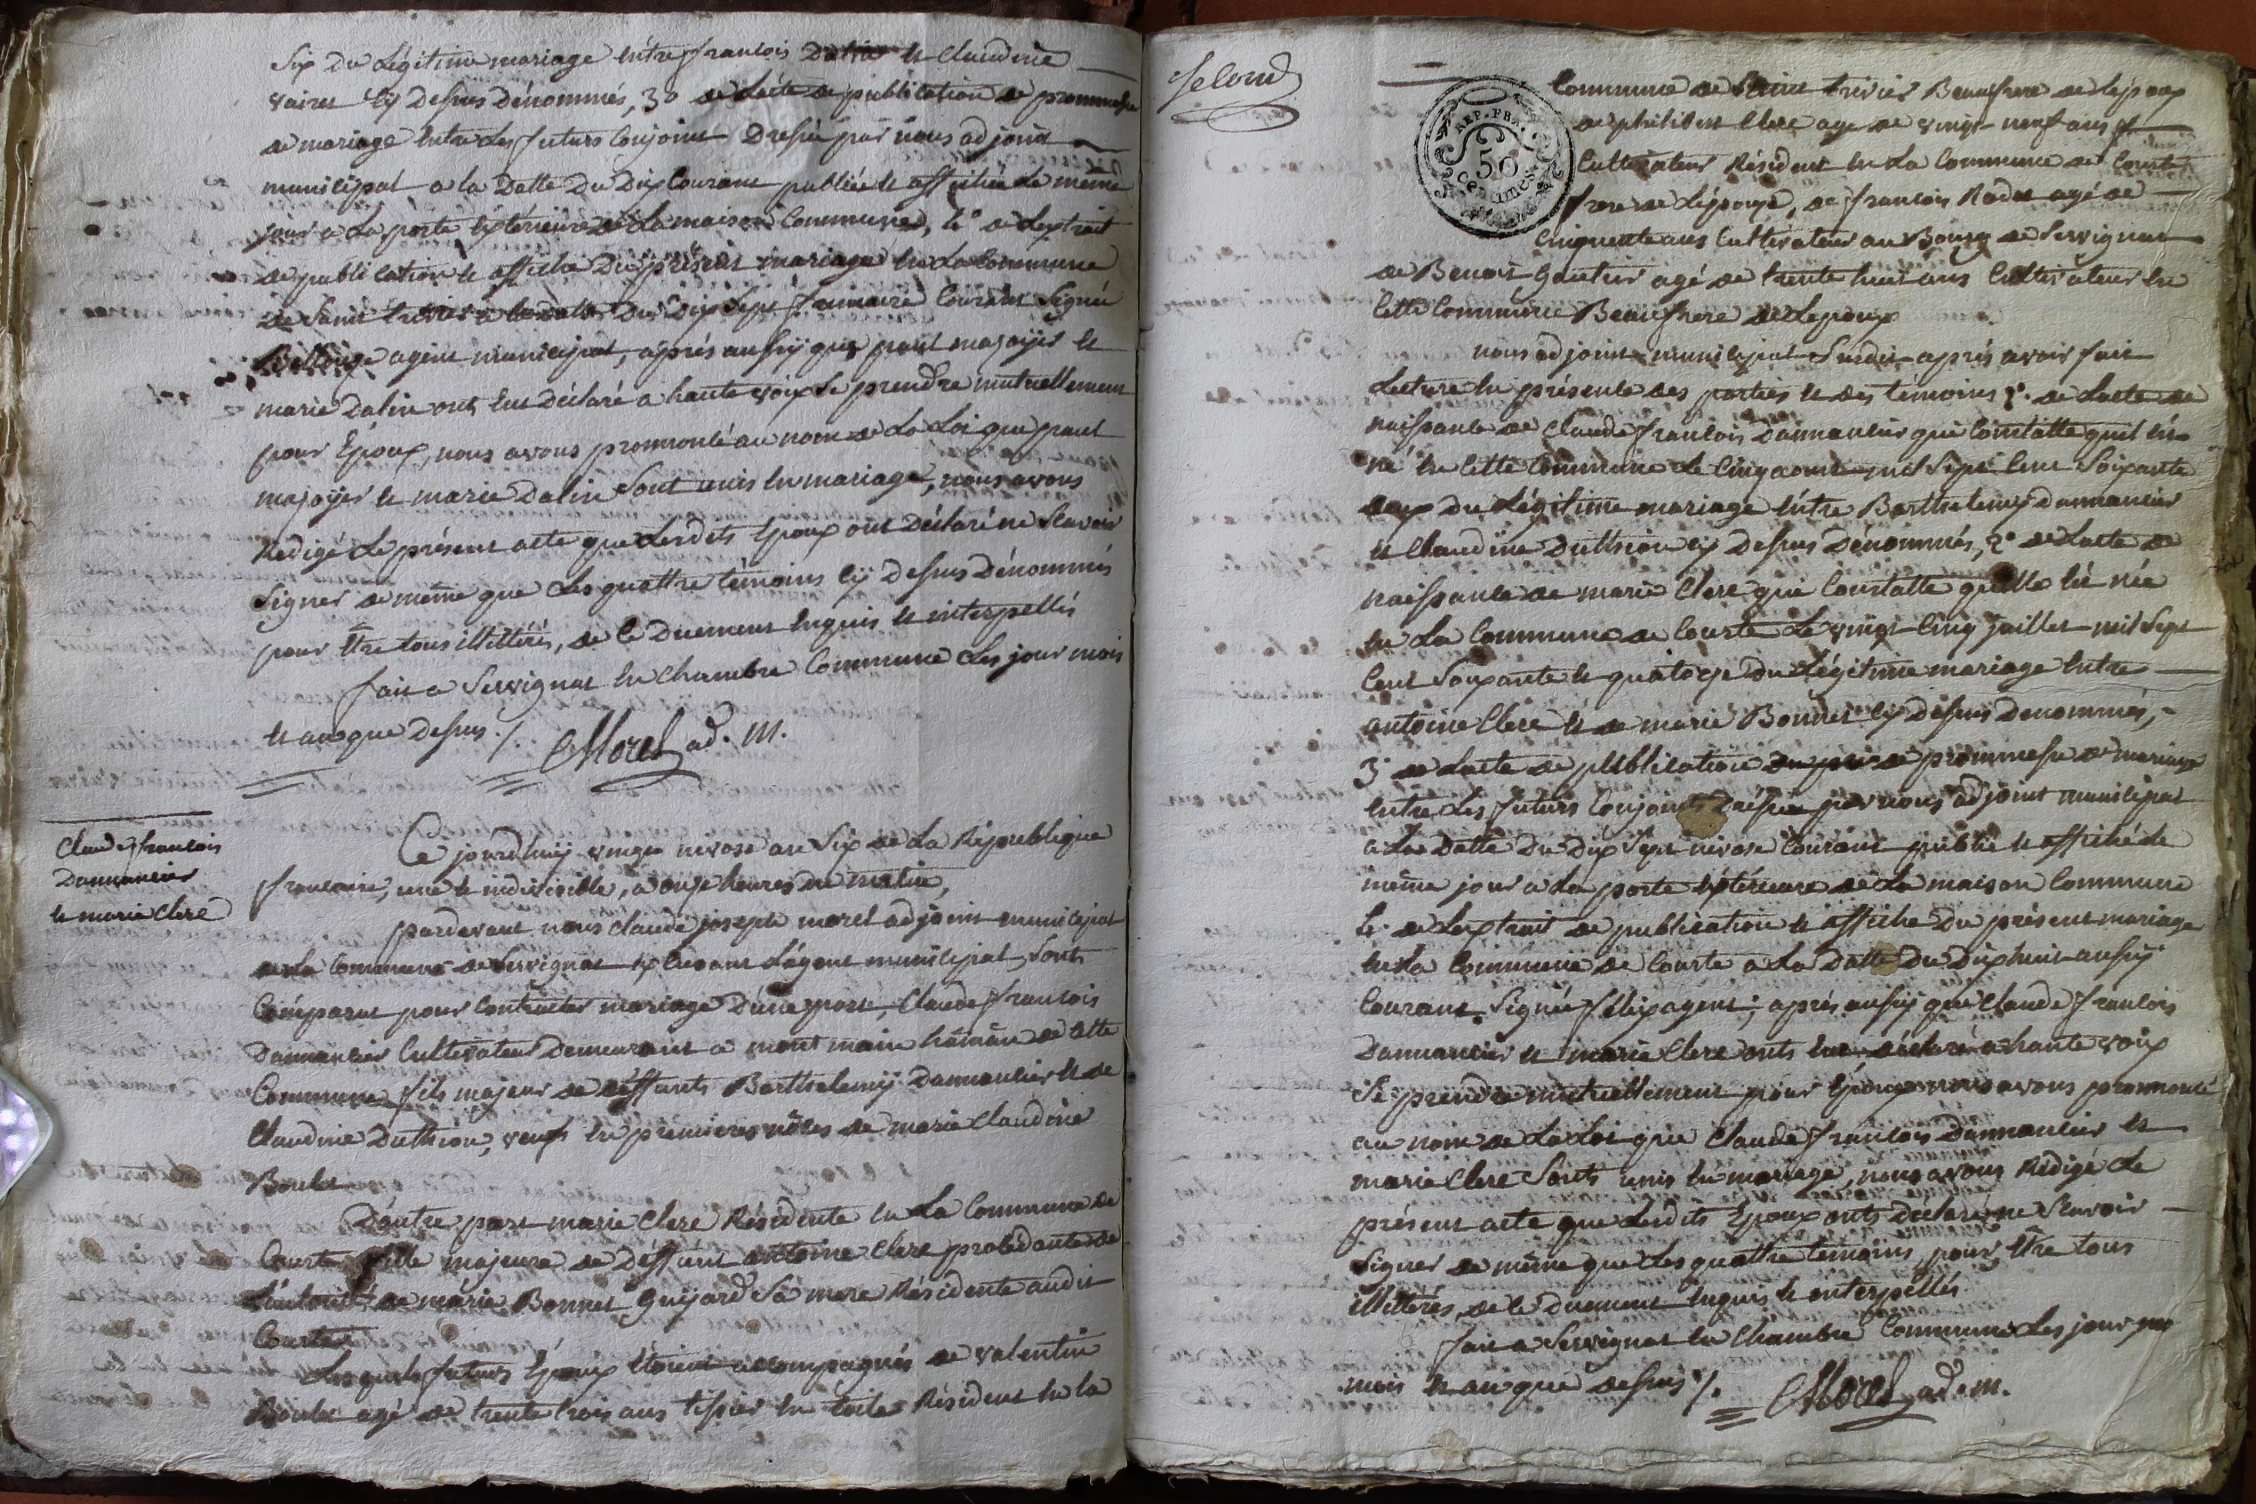 Six du Légitime mariage entre francois Dalin et Claudine
vaires cy Dessus Dénommés, 3° de Lacte de publication de prommesse
de mariage Entre Les futurs Conjoins Dressée par nous adjoint
municipal a la Datte Du Dix Courant publiée et affichée Le meme
jour a La porte Extérieure de La maison Commune, 4° de Lextrait
de publication et affiche Du présent mariage En La Commune
de Saint trivier a la datte Du Dix Sept frimaire Courant Signé
agent municipal, aprés aussy que majoyer et
marie Dalin onts Eut Déclaré a haute voix Se prendre mutuellement
pour Epoux, nous avons prommoncé au nom de La Loi que
majoyer et marie Dalin Sont unis En mariage, nous avons
Redigé Le présent acte que Lesdits Epoux ont Déclaré ne Scavoir
Signer de même que Les quattre témoins cy Dessus Dénommés
pour Etre tous illittérés, de Ce Duement Enquis et interpellés
fait a Servignat En Chambre Commune Les jour mois
et an que Dessus ./. CMorel ad. m.
Claude francois
Dannancier
et marie Clerc
Ce jourd'huy vingt nivose an Six de La République
francaise, une et indivisible, a onze heures du matin,
pardevant nous Claude joseph morel adjoint municipal
de La Commune de Servignat Excusant L'agent municipal, Sonts
Comparut pour Contracter mariage D'une part, Claude francois
Dannancier Cultivateur Demeurant a mont main hamau de Cette
Commune fils majeur de déffunts Barthelemy Dannancier et de
Claudine Duthion, veuf En premieres nôces de marie Claudine
Boulet
D'autre part marie Clerc Résidente En La Commune de
Courte fille majeure de Déffunt antoine Clerc procédante de
L'autorité de marie Bonnet Guyard Sa mere Résidente audit
Courtes
Lesquels futurs Epoux Etoient accompagnés de valentin
Boulet agé de trente trois ans tissier En toile Résident En la
Second
REP. FRA.
50
CENTIMES
Commune de Saint trivier Beaufrere de Lépoux
de philibert Clerc agé de vingt-neuf ans
Cultivateur Résident En La Commune de Courte
frere de Lépouse, de francois Rodet agé de
Cinquante ans Cultivateur au Bourg de Servignat
de Benoit Gautier agé de trente huit ans Cultivateur En
Cette Commune Beaufrere de Lepoux
nous adjoint municipal Susdit aprés avoir fait
Lecture En présence des parties et des témoins 1°. de Lacte de
naissance de Claude francois Dannancier qui Constatte quil Est
né En Cette Commune Le Cinq aoust mil Sept Cent Soixante
Du Légitime mariage Entre Barthelemy Dannancier
et Claudine Duthion cy Dessus Dénommés, 2° de Lacte de
naissance de marie Clerc qui Constatte quelle Est née
En La Commune de Courte Le vingt Cinq juillet mil Sept
Cent Soixante et quatorze Du Légitime mariage Entre
antoine Clerc et de marie Bonnet cy Dessus Denommés,
3° de Lacte de publication de prommesse de mariage
Entre Les futurs Conjoints Dressée par nous adjoint municipal
a La Datte Du Dix Sept nivose Courant publié et affiché Le
même jour a La porte Extérieure de La maison Commune
4°. de Lextrait de publication et affiche Du présent mariage
En La Commune de Courte a La Datte Du Dixhuit aussy
Courant Signé félix agent; aprés aussy que Claude francois
Dannancier et marie Clerc onts Eut déclaré a haute voix
Se prendre mutuellement pour Epoux nous avons prommoncé
au nom de La Loi que Claude francois Dannancier et
marie Clerc Sonts unis En mariage, nous avons Rédigé Le
présent acte que Lesdits Epoux onts Déclaré ne Scavoir
Signer de même que Les quattre temoins pour Etre tous
illittérés, de Ce Duement Enquis et interpellés
fait a Servignat En Chambre Commune Les jour
mois et an que dessus ./. CMorel ad. m.